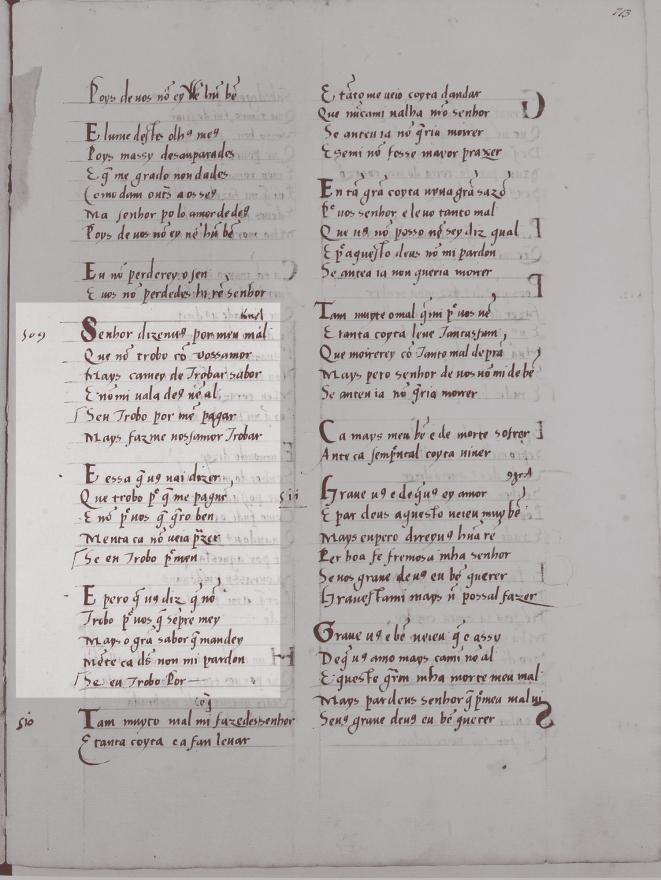 113
Poys deuos nō ey nē hū bē
E lume desṭs olhꝯ meꝯ
Poys massy desauparades
E q̄ me grado non dades
Como dam outs̄ a os seꝯ
Ma senhor polo amor de deꝯ
Poys de uos nō ey nē hū bē
Eu nō perderey o sen
E uos nō perdedes hi rē senhor
509
Senhor dizenuꝯ por meu mal
Que nō trobo cō uossamor
Mays camey de Trobar sabor
E nō mi uala deꝯ nē al
Seu Trobo por mē pagar
Mays faz me uossamor Trobar
E essa q̄ uꝯ uai dizer
Que trobo p̄ q̄ me pagu
E nō p̄ uos q̄ q̄ro ben
Menta ca nō ueia p̄zer
Se eu Trobo p̄ men
E pero q̄ uꝯ diz q̄ nō
Trobo p̄ uos q̄ sēpre mey
Mays o grā sabor q̄ mandey
Mēte ca ds̄ non mi pardon
Se eu Trobo Por
510
Tam muyto mal mi fazedes senhor
E tanta coyta e afan leuar
E tāto me ueio coyta dandar
Que nūcami ualha nr̄o senhor
Se anteu ia nō q̄ria morrer
E semi nō fosse mayor prazer
En tā grā coyta uyuꝯ grā sazō
P̄ uos senhor e leuo tanto mal
Que uꝯ nō posso nē sey diz qual
E p̄ aquesto deus nō mi pardon
Se anteu ia non queria morrer
Tam muyte o mal q̄ mi p̄ uos uē
E tanta coyta leue Tantaffam
Que moirerey cō Tanto mal de prā
Mays pero senhor de uos uō mi de bē
Se anteu ia nō q̄ria morrer
Ca mays meu bē e de morte sofrer
Ante ca sempr̄ntal coyta uiuer
511
Graue uꝯ e de q̄ uꝯ ey amor
E par deus aquesto ueieu muy bē
Mays enpero direyuꝯ hūa rē
Per boa fe fremosa mha senhor
Se uos graue de uꝯ eu bē querer
Grauestami mays ñ possal fazer
Graue uꝯ e bē ueieu q̄ e assy
De q̄ uꝯ amo mays cami nē al
E questo grēn mha morte meu mal
Mays par deus senhor q̄ p̄ mea mal ui
Seuꝯ graue deuꝯ eu bē querer